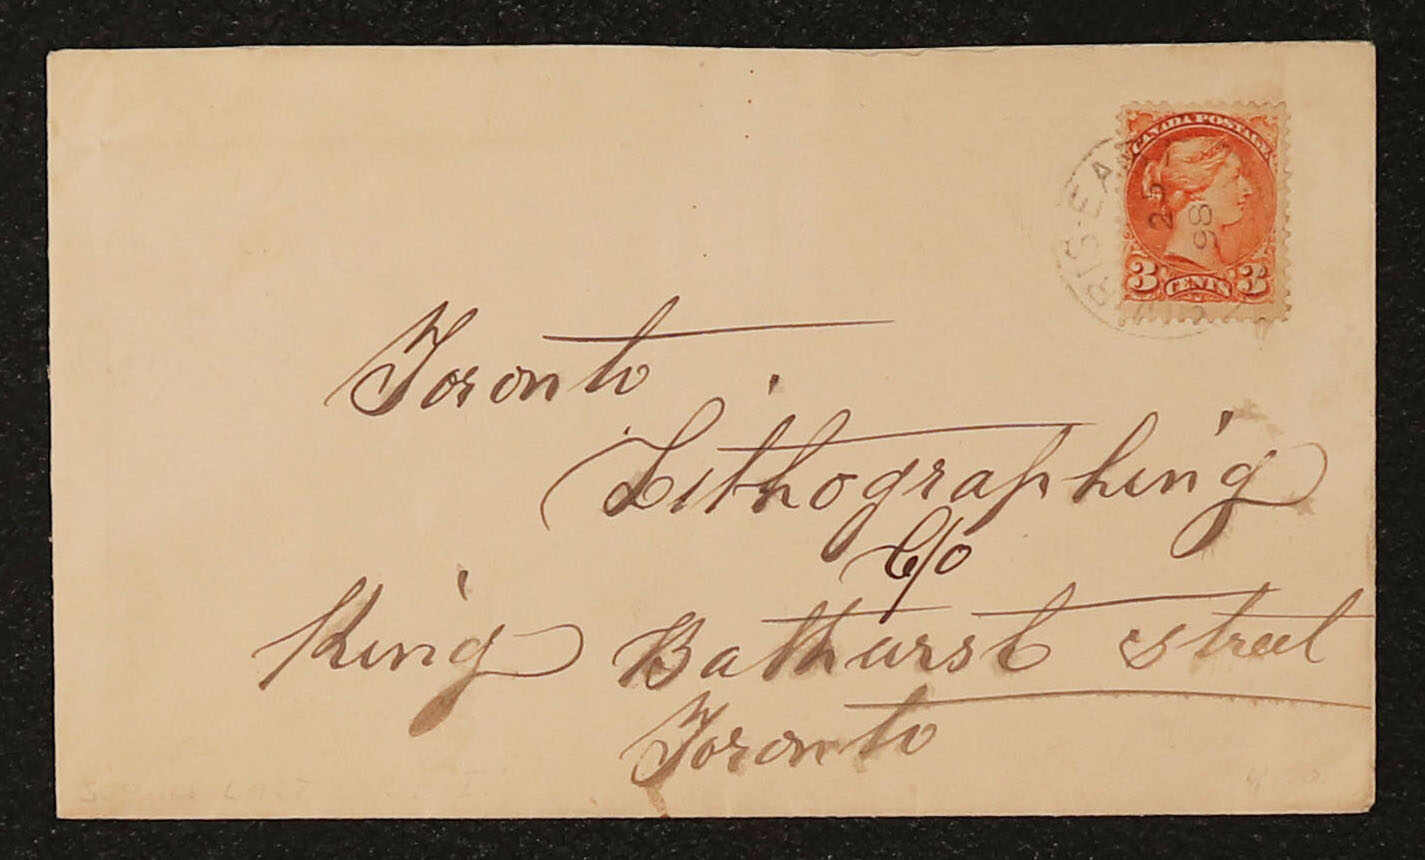 CANADA POSTAGE
25
98
3 CENTS 3
Toronto
Lithographing
C/o
King Bathurst street
Toronto